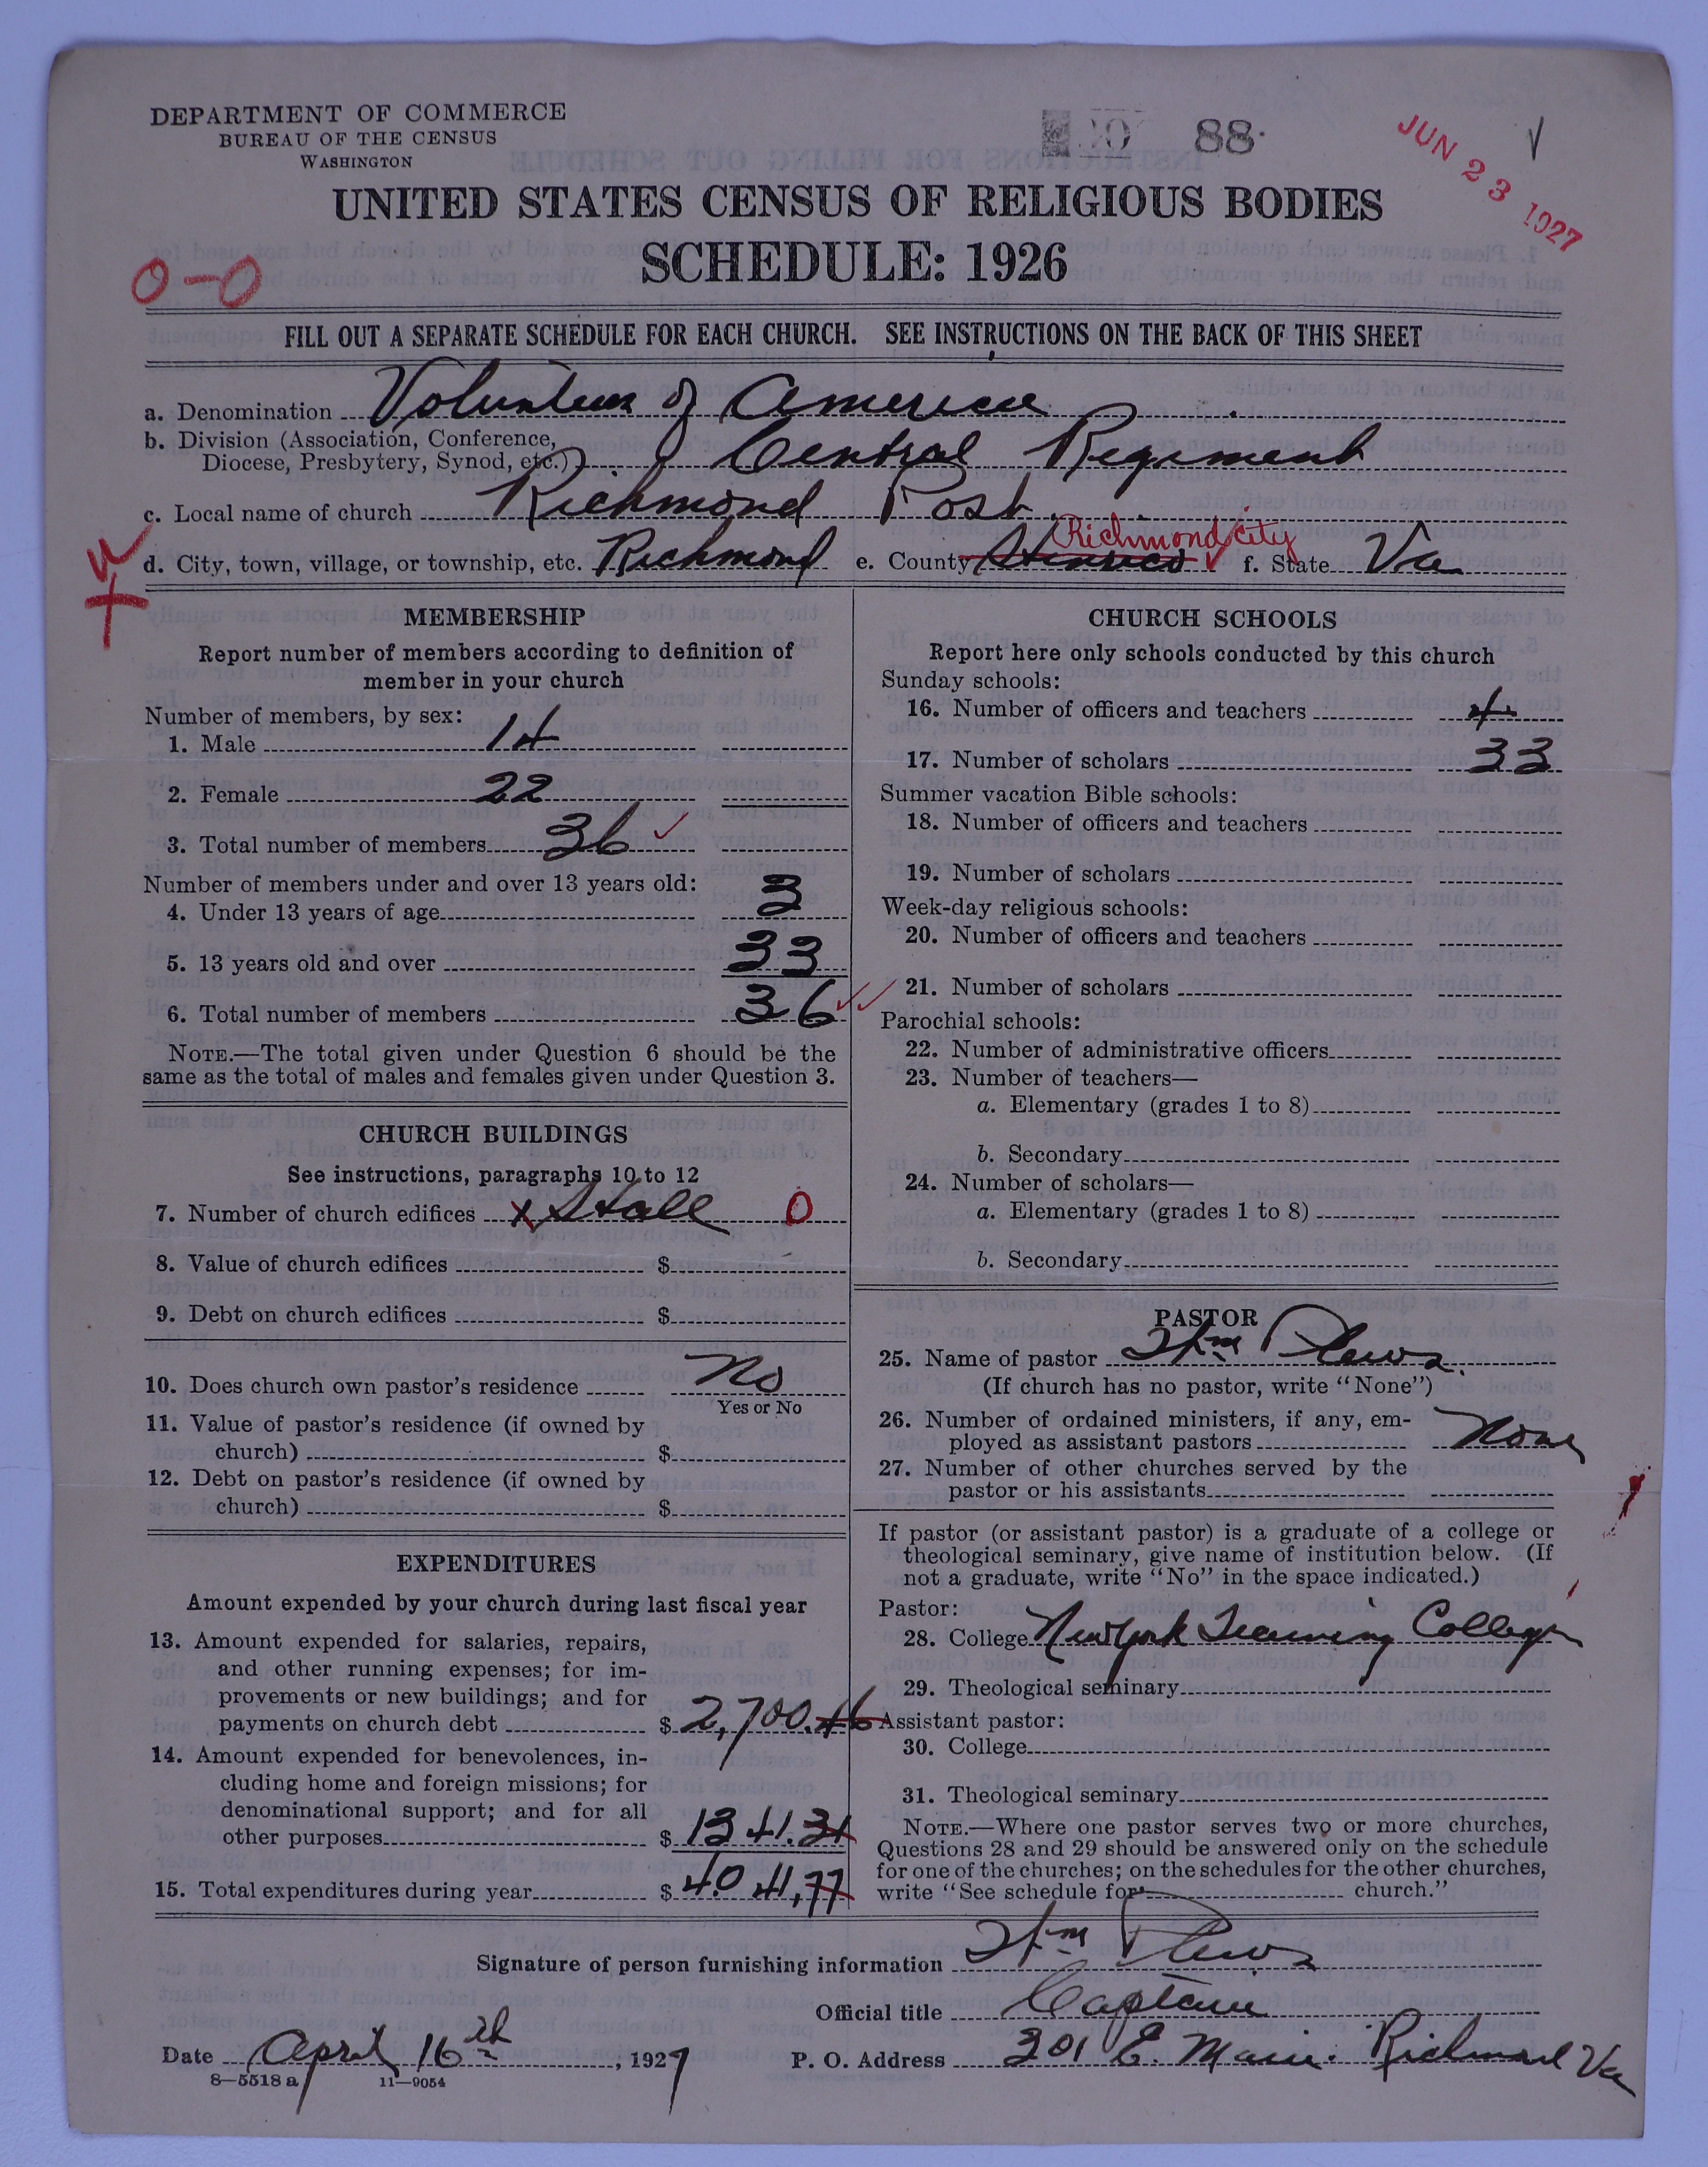 DEPARTMENT OF COMMERCE
BUREAU OF THE CENSUS
WASHINGTON
88
JUN 23 1927
UNITED STATES CENSUS OF RELIGIOUS BODIES
SCHEDULE: 1926
0-0
FILL OUT A SEPARATE SCHEDULE FOR EACH CHURCH. SEE INSTRUCTIONS ON THE BACK OF THIS SHEET
a. Denomination Volunteers of America
b. Division (Association, Conference,
Diocese, Presbytery, Synod, etc.) Central Regiment
c. Local name of church Richmond Post
d. City, town, village, or township, etc. Richmond e. County Henrico Richmond City f. State Va
MEMBERSHIP
Report number of members according to definition of
member in your church
Number of members, by sex:
1. Male 14
2. Female 22
3. Total number of members 36
Number of members under and over 13 years old:
4. Under 13 years of age 3
5. 13 years old and over 33
6. Total number of members 36
NOTE.—The total given under Question 6 should be the
same as the total of males and females given under Question 3.
CHURCH BUILDINGS
See instructions, paragraphs 10 to 12
7. Number of church edifices x Hall 0
8. Value of church edifices $
9. Debt on church edifices $
10. Does church own pastor's residence No
Yes or No
11. Value of pastor's residence (if owned by
church) $
12. Debt on pastor's residence (if owned by
church) $
EXPENDITURES
Amount expended by your church during last fiscal year
13. Amount expended for salaries, repairs,
and other running expenses; for im-
provements or new buildings; and for
payments on church debt $ 2,700.46
14. Amount expended for benevolences, in-
cluding home and foreign missions; for
denominational support; and for all
other purposes $ 1341.31
15. Total expenditures during year $ 4041,77
CHURCH SCHOOLS
Report here only schools conducted by this church
Sunday schools:
16. Number of officers and teachers 4
17. Number of scholars 33
Summer vacation Bible schools:
18. Number of officers and teachers
19. Number of scholars
Week-day religious schools:
20. Number of officers and teachers
21. Number of scholars
Parochial schools:
22. Number of administrative officers
23. Number of teachers—
a. Elementary (grades 1 to 8)
b. Secondary
24. Number of scholars—
a. Elementary (grades 1 to 8)
b. Secondary
PASTOR
25. Name of pastor Wm Plews.
(If church has no pastor, write "None")
26. Number of ordained ministers, if any, em-
ployed as assistant pastors None
27. Number of other churches served by the
pastor or his assistants
If pastor (or assistant pastor) is a graduate of a college or
theological seminary, give name of institution below. (If
not a graduate, write "No" in the space indicated.)
Pastor:
28. College New York Training College
29. Theological seminary
Assistant pastor:
30. College
31. Theological seminary
NOTE.—Where one pastor serves two or more churches,
Questions 28 and 29 should be answered only on the schedule
for one of the churches; on the schedules for the other churches,
write "See schedule for church."
Signature of person furnishing information Wm Plews
Official title Captain
Date April 16th, 1927 P. O. Address 201 E. Main. Richmond Va
8—5518 a 11—9054